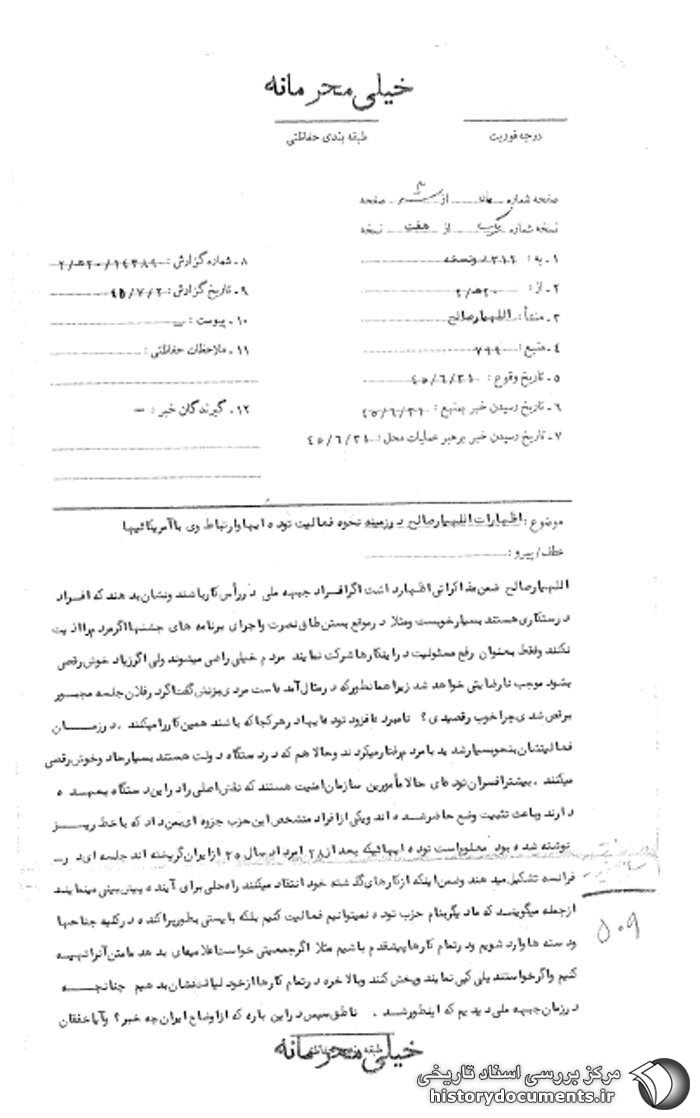 خیلی محرمانه
درجه فوریت
طبقه بندی حفاظتی
صفحه شماره یک از ۳ صفحه
نسخه شماره یک از هفت نسخه
۱ـ به : ۳۱۲
۲ـ از : ۲۰هـ۲
۳ـ منشأ : اللهیار صالح
۴ـ منبع : ۷۹۹
۵ـ تاریخ وقوع : ۴۵/۶/۳۱
۶ـ تاریخ رسیدن خبر بمنبع : ۴۵/۶/۳۱
۷ـ تاریخ رسیدن خبر برهبر عملیات محل : ۴۵/۶/۳۱
۸ـ شماره گزارش : ۲۰/۱۴۳۸۹هـ۲
۹ـ تاریخ گزارش : ۴۵/۷/۲
۱۰ـ پیوست : ـ
۱۱ـ ملاحظات حفاظتی :
۱۲ـ گیرندگان خبر : ـ
موضوع : اظهارات اللهیار صالح در زمینه نحوه فعالیت توده ایها و ارتباط وی با آمریکائیها
عطف/پیرو :
اللهیار صالح ضمن مذاکراتی اظهار داشت اگر افراد جبهه ملی در رأس کار باشند و نشان بدهند که افراد
درستکاری هستند بسیار خوبست و مثلا در موقع بستن طاق نصرت و اجرای برنامه های جشنها اگر مردم را اذیت
نکنند و فقط بعنوان رفع مسئولیت در اینکارها شرکت نمایند مردم خیلی راضی میشوند ولی اگر زیاد خوش رقصی
بشود موجب نارضایتی خواهد شد زیرا همانطور که در مثال آمده است مردی بزنش گفت اگر در فلان جلسه مجبور
برقص شدی چرا خوب رقصیدی ؟ نامبرده افزود توده ایها در هر کجا که باشند همین کار را میکنند . در زمان
فعالیتشان بنحو بسیار شدید با مردم رفتار میکردند و حالا هم که در دستگاه دولت هستند بسیار حاد و خوش رقصی
میکنند . بیشتر افسران توده ای حالا مأمورین سازمان امنیت هستند که نقش اصلی را در این دستگاه بعهده
دارند و باعث تثبیت وضع حاضر شده اند و یکی از افراد متشخص این حزب جزوه ای بمن داد که با خط ریز
نوشته شده بود معلوم است توده ایهائیکه بعد از ۲۸ امرداد سال ۳۵ از ایران گریخته اند جلسه ای در
فرانسه تشکیل میدهند و ضمن اینکه از کارهای گذشته خود انتقاد میکنند راه حلی برای آینده پیش بینی مینمایند
از جمله میگویند که ما دیگر بنام حزب توده نمیتوانیم فعالیت کنیم بلکه بایستی بطور پراکنده در کلیه جناحها
و دسته ها وارد شویم و در تمام کارها پیشقدم باشیم مثلا اگر جمعیتی خواست اعلامیه‌ای بدهد ما متن آنرا تهیه
کنیم و اگر خواستند پلی کپی نمایند و پخش کنند و بالاخره در تمام کارها از خود لیاقت نشان بدهیم چنانچه
در زمان جبهه ملی دیدیم که اینطور شد . ناطق سپس در این باره که از اوضاع ایران چه خبر ؟ و آیا خفقان
۵۰۹
طبقه بندی حفاظتی
خیلی محرمانه
مرکز بررسی اسناد تاریخی
historydocuments.ir